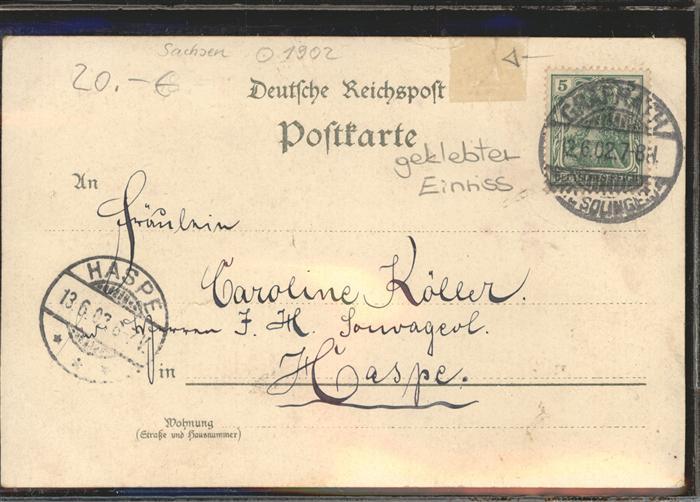 Sachsen O 1902
20.-€
Deutsche Reichspost
Postkarte
5
DEUTSCHES REICH
GRÄFRATH
12.6.02.7-8N.
SOLINGEN
geklebter
Einriss
An
Fräulein
Caroline Köller.
Herren F. H.
in Haspe.
HASPE
13.6.02
Wohnung
(Straße und Hausnummer)